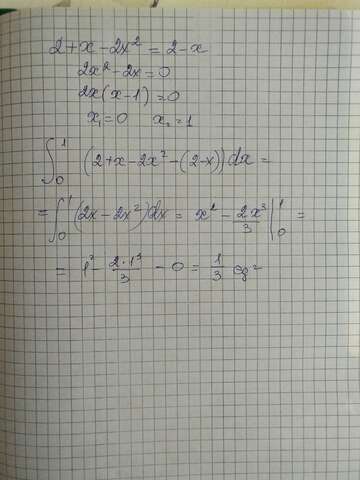 2+x-2x² = 2-x
2x²-2x=0
2x(x-1)=0
x₁=0 x₂=1
∫₀¹ (2+x-2x²-(2-x))dx =
= ∫₀¹ (2x-2x²)dx = x² - 2x³/3 |₀¹ =
= 1² - 2·1³/3 - 0 = 1/3 eg²